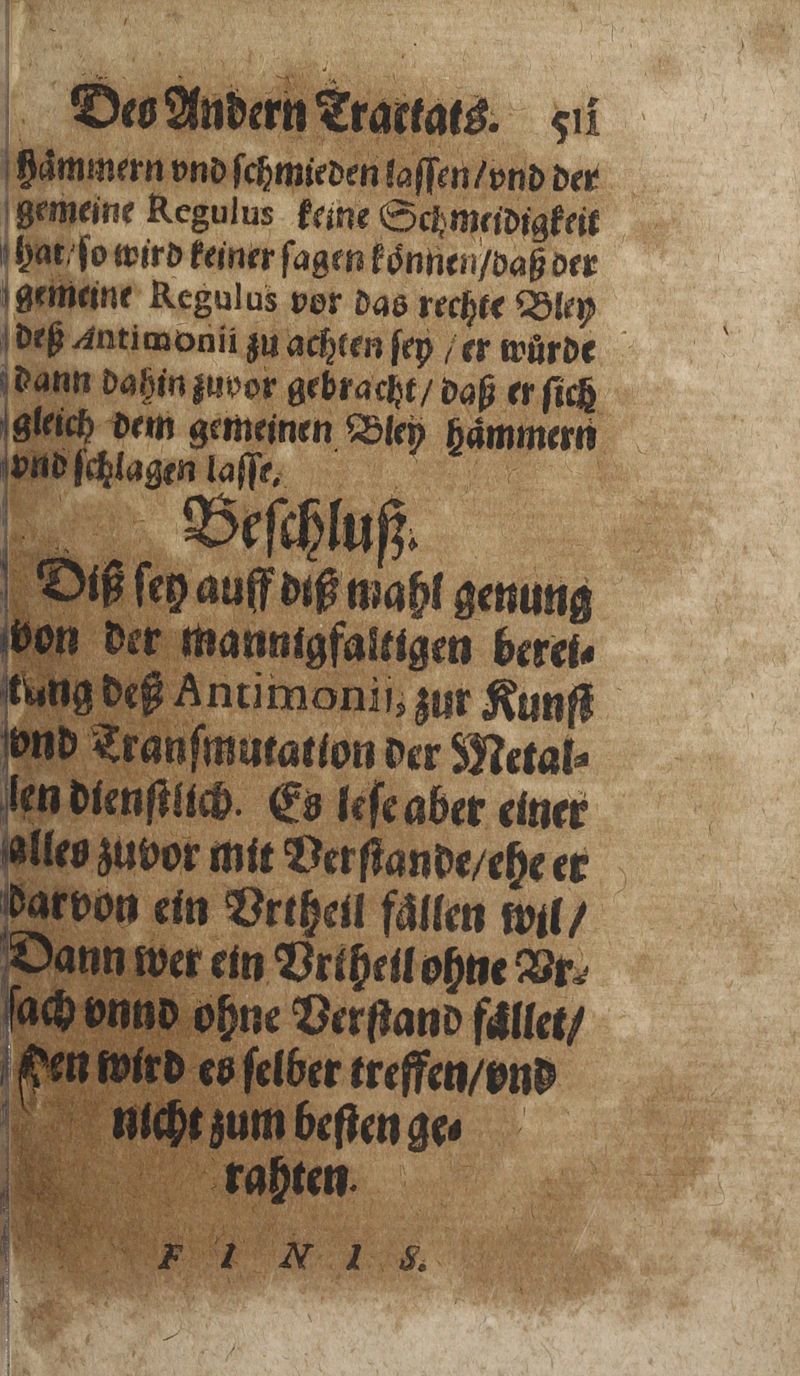 Des Andern Tractats. 511
Hämmern vnd ſchmieden laſſen/vnd der
gemeine Regulus keine Schmeidigkeit
hat/ſo wird keiner ſagen können/daß der
gemeine Regulus vor das rechte Bley
deß Antimonii zu achten ſey / er würde
dann dahin zuvor gebracht/ daß er ſich
gleich dem gemeinen Bley hämmern
vnd ſchlagen laſſe.
Beſchluß.
Diß ſey auff diß mahl genung
von der mannigfaltigen berei-
tung deß Antimonii, zur Kunſt
vnd Tranſmutation der Metal-
len dienſtlich. Es leſe aber einer
alles zuvor mit Verſtande/ehe er
darvon ein Vrtheil fällen wil/
Dann wer ein Vrtheil ohne Vr-
ſach vnnd ohne Verſtand fället/
den wird es ſelber treffen/vnd
nicht zum beſten ge-
rahten.
F I N I S.